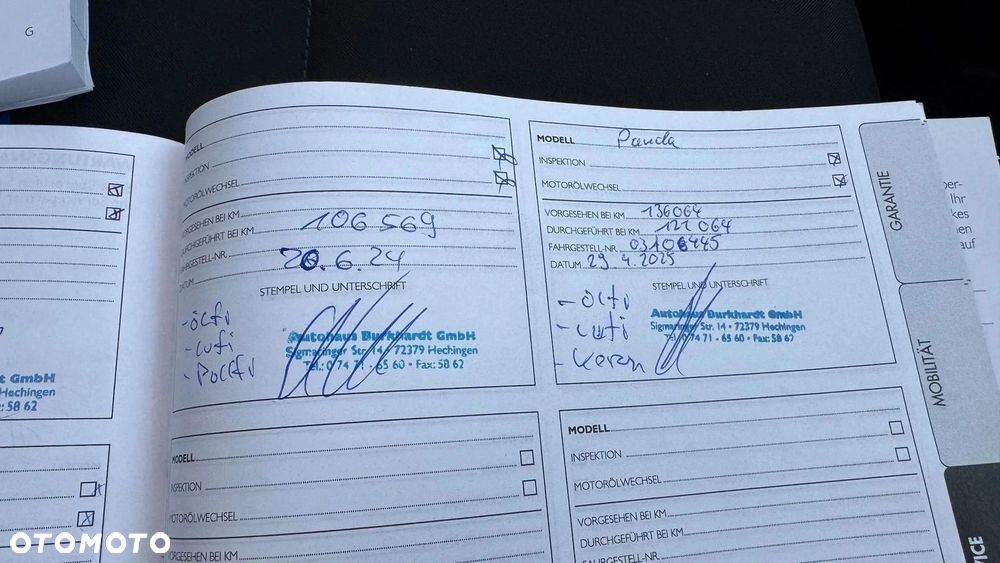 G
t GmbH
Hechingen
: 58 62
MODELL
INSPEKTION
MOTORÖLWECHSEL
VORGESEHEN BEI KM
106 569
DURCHGEFÜHRT BEI KM
FAHRGESTELL-NR.
DATUM
20.6.24
STEMPEL UND UNTERSCHRIFT
- ölfi
- lufi
- Pollfi
Autohaus Burkhardt GmbH
Sigmaringer Str. 14 • 72379 Hechingen
Tel.: 0 74 71 - 65 60 • Fax: 58 62
MODELL Panda
INSPEKTION
MOTORÖLWECHSEL
VORGESEHEN BEI KM 136064
DURCHGEFÜHRT BEI KM 121064
FAHRGESTELL-NR. 03106445
DATUM 29.4.2025
STEMPEL UND UNTERSCHRIFT
- ölfi
- lufi
- Kerzen
Autohaus Burkhardt GmbH
Sigmaringer Str. 14 • 72379 Hechingen
Tel.: 0 74 71 - 65 60 • Fax: 58 62
MODELL
INSPEKTION
MOTORÖLWECHSEL
VORGESEHEN BEI KM
MODELL
INSPEKTION
MOTORÖLWECHSEL
VORGESEHEN BEI KM
DURCHGEFÜHRT BEI KM
FAHRGESTELL-NR.
GARANTIE
MOBILITÄT
VICE
ber-
Ihr
kes
nen
auf
OTOMOTO